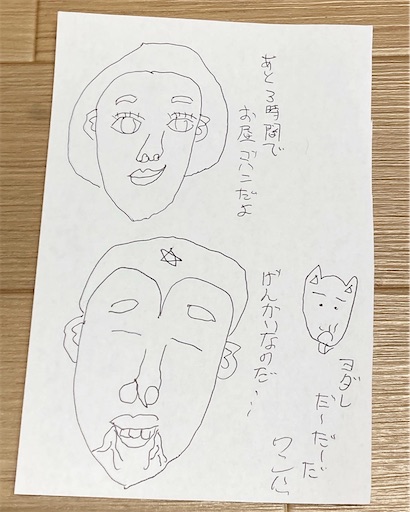 あと3時間で
お昼ゴハンだよ
げんかいなのだ…
ヨダレ
だ〜だ〜だ
ワン公